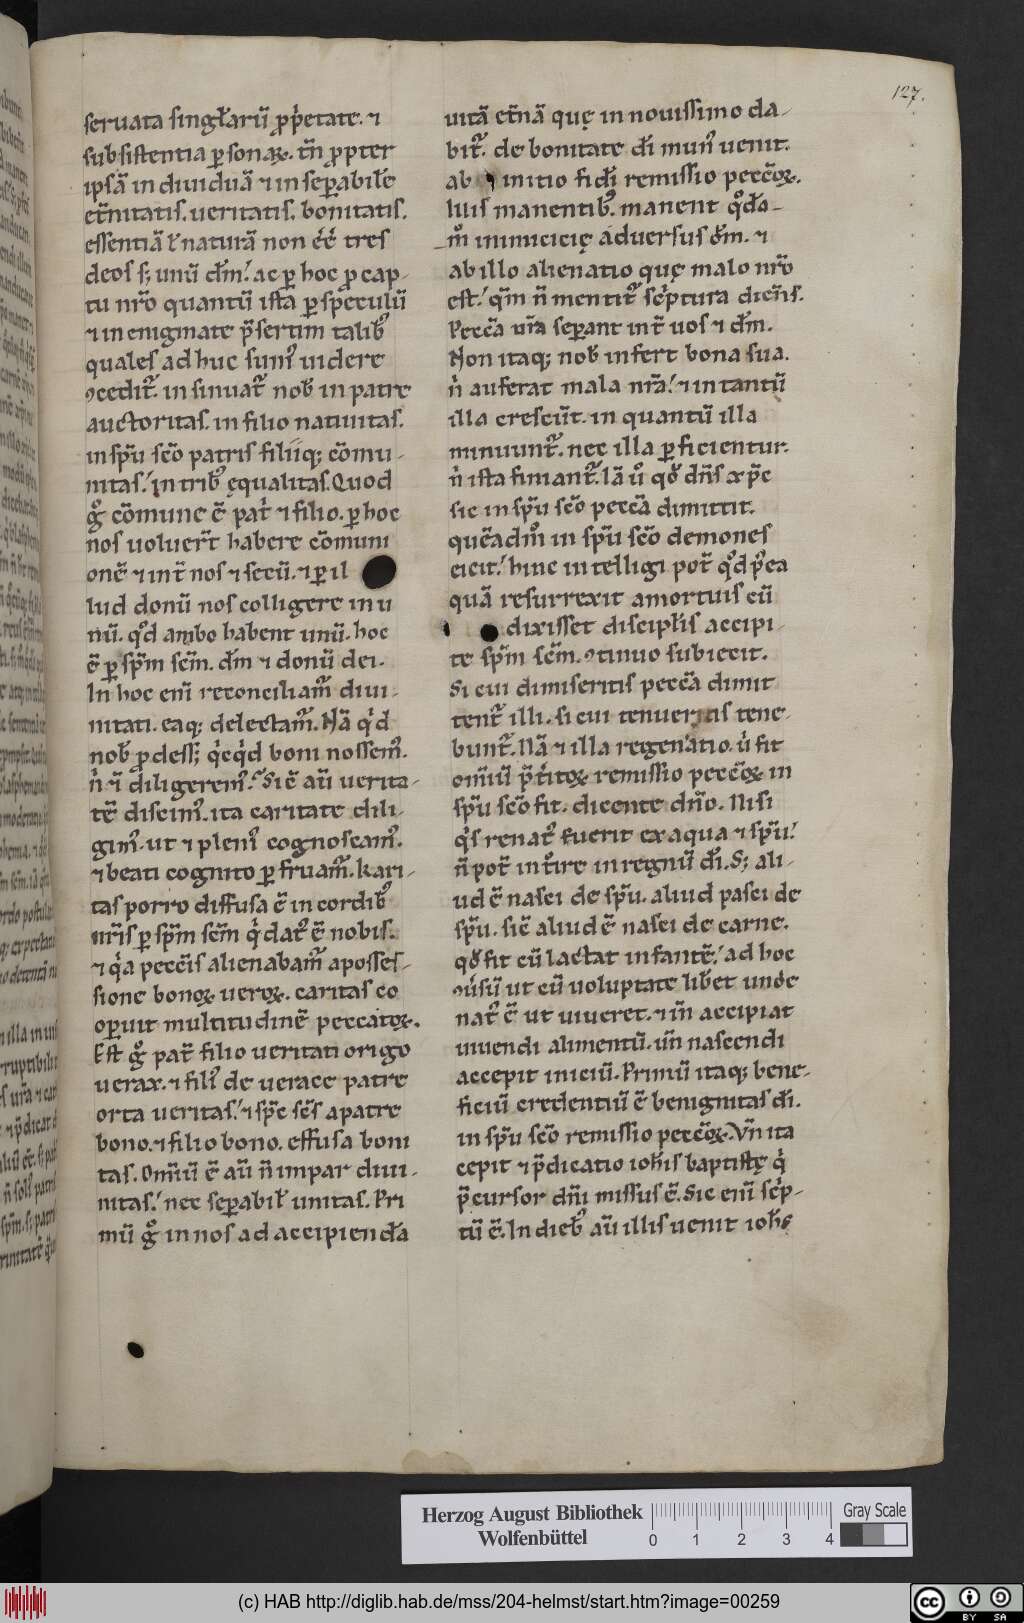 127.
seruata singlarũ ꝓp̾etate. ⁊
subsistentia ꝑsonaꝝ. tm̃ ꝓpter
ipsã indiuiduã ⁊ insepabilẽ
et̃nitatis. ueritatis. bonitatis.
essentiã ł naturã non éé tres
deos s; unũ dm̃. ac ꝑ hoc ꝓ cap-
tu nr̃o quantũ ista ꝑ speculũ
⁊ in enigmate p̃sertim talib᷒
quales adhuc sum᷒ uidere
ꝯcedit᷑. insinuat᷑ nob̃ in patre
auctoritas. in filio natiuitas.
in spũ sc̃o patris filiiq; cõmu-
nitas. in trib᷒ ęqualitas. Quod
gͦ cõmune ẽ pat̃ ⁊ filio. ꝑ hoc
nos uoluer̃t habere cõmuni
onẽ ⁊ int̃ nos ⁊ secũ. ⁊ ꝑ il
lud donũ nos colligere in u
nũ. qͦd ambo habent unũ. hoc
ẽ ꝑ spm̃ scm̃. dm̃ ⁊ donũ dei.
In hoc eni᷑ reconciliam᷑ diui-
nitati. eaq; delectam᷑. Nã qͥd
nob̃ ꝓdess; qͥcqͥd boni nossem᷒.
n̾ ⁊̃ diligerem᷒. Sic̃ aũ uerita-
tẽ discim᷒. ita caritate dili-
gim᷒. ut ⁊ pleni᷒ cognoscam᷒.
⁊ beati cognito ꝑfruam᷑. Kari-
tas porro diffusa ẽ in cordib᷒
nr̃is ꝑ spm̃ scm̃ qͥ dat᷒ ẽ nobis.
⁊ qͥa pecc̃is alienabam᷑ a posses-
sione bonoꝝ ueroꝝ. caritas co
oꝑuit multitudinẽ peccatoꝝ.
Est gͦ pat̃ filio ueritati origo
uerax. ⁊ fili᷒ de uerace patre
orta ueritas. ⁊ spc̃ sc̃s a patre
bono. ⁊ filio bono. effusa boni
tas. Om̃iũ ẽ aũ n̄ impar diui-
nitas. nec sepabił unitas. Pri
mũ gͦ in nos ad accipiendã
uitã et̃nã quę in nouissimo da-
bit᷑. de bonitate di᷑ mun᷒ uenit.
ab initio fidi᷑ remissio pecc̃oꝝ.
Illis manentib᷒. manent qͦdã-
mͦ inimicicię aduersus dm̃. ⁊
ab illo alienatio quę malo nr̃o
est. qm̃ n̄ mentit᷑ sc̾ptura dicen̄s.
Pecc̃a ur̃a sepant int̃ uos ⁊ dm̃.
Non itaq; nob̃ infert bona sua.
n̾ auferat mala nr̃a. ⁊ in tantũ
illa crescũt. in quantũ illa
minuunt᷑. nec illa ꝑficientur.
n̾ ista finiant᷑. Iã uͦ qd̃ dn̄s xp̃c
sic in spũ sc̃o pecc̃a dimittit.
quẽadmͦ in spũ sc̃o demones
eicit. hinc intelligi pot̃ qͦd p͛ea
quã resurrexit a mortuis cũ
dixisset discipłis accipi-
te spm̃ scm̃. ꝯtinuo subiecit.
Si cui dimiseritis pecc̃a dimit
tent᷑ illi. si cui tenueritis tene-
bunt᷑. Nã ⁊ illa regeneratio. u᷑ fit
om̃iũ p̃t᷑itoꝝ remissio pecc̃oꝝ in
spũ sc̃o fit. dicente dño. Nisi
qͥs renat᷒ fuerit ex aqua ⁊ spũ.
n̄ pot̃ int͛re in regnũ di᷑. S; ali-
ud ẽ nasci de spũ. aliud pasci de
spũ. sic̃ aliud ẽ nasci de carne.
qd̃ fit cũ lactat infantẽ. ad hoc
ꝯu͛sũ ut cũ uoluptate libet unde
nat᷒ ẽ ut uiueret. ⁊ in̄ accipiat
uiuendi alimentũ. un̄ nascendi
accepit iniciũ. Primũ itaq; bene-
ficiũ credentiũ ẽ benignitas di᷑.
in spũ sc̃o remissio pecc̃oꝝ. Un̄ ita
cepit ⁊ p̃dicatio ioh̃is baptistę qͥ
p̃cursor dñi missus ẽ. Sic eni᷑ sc̾p-
tũ ẽ. In dieb᷒ aũ illis uenit ioh̃s
Herzog August Bibliothek
Wolfenbüttel
0 1 2 3 4
Gray Scale
(c) HAB http://diglib.hab.de/mss/204-helmst/start.htm?image=00259
cc BY SA